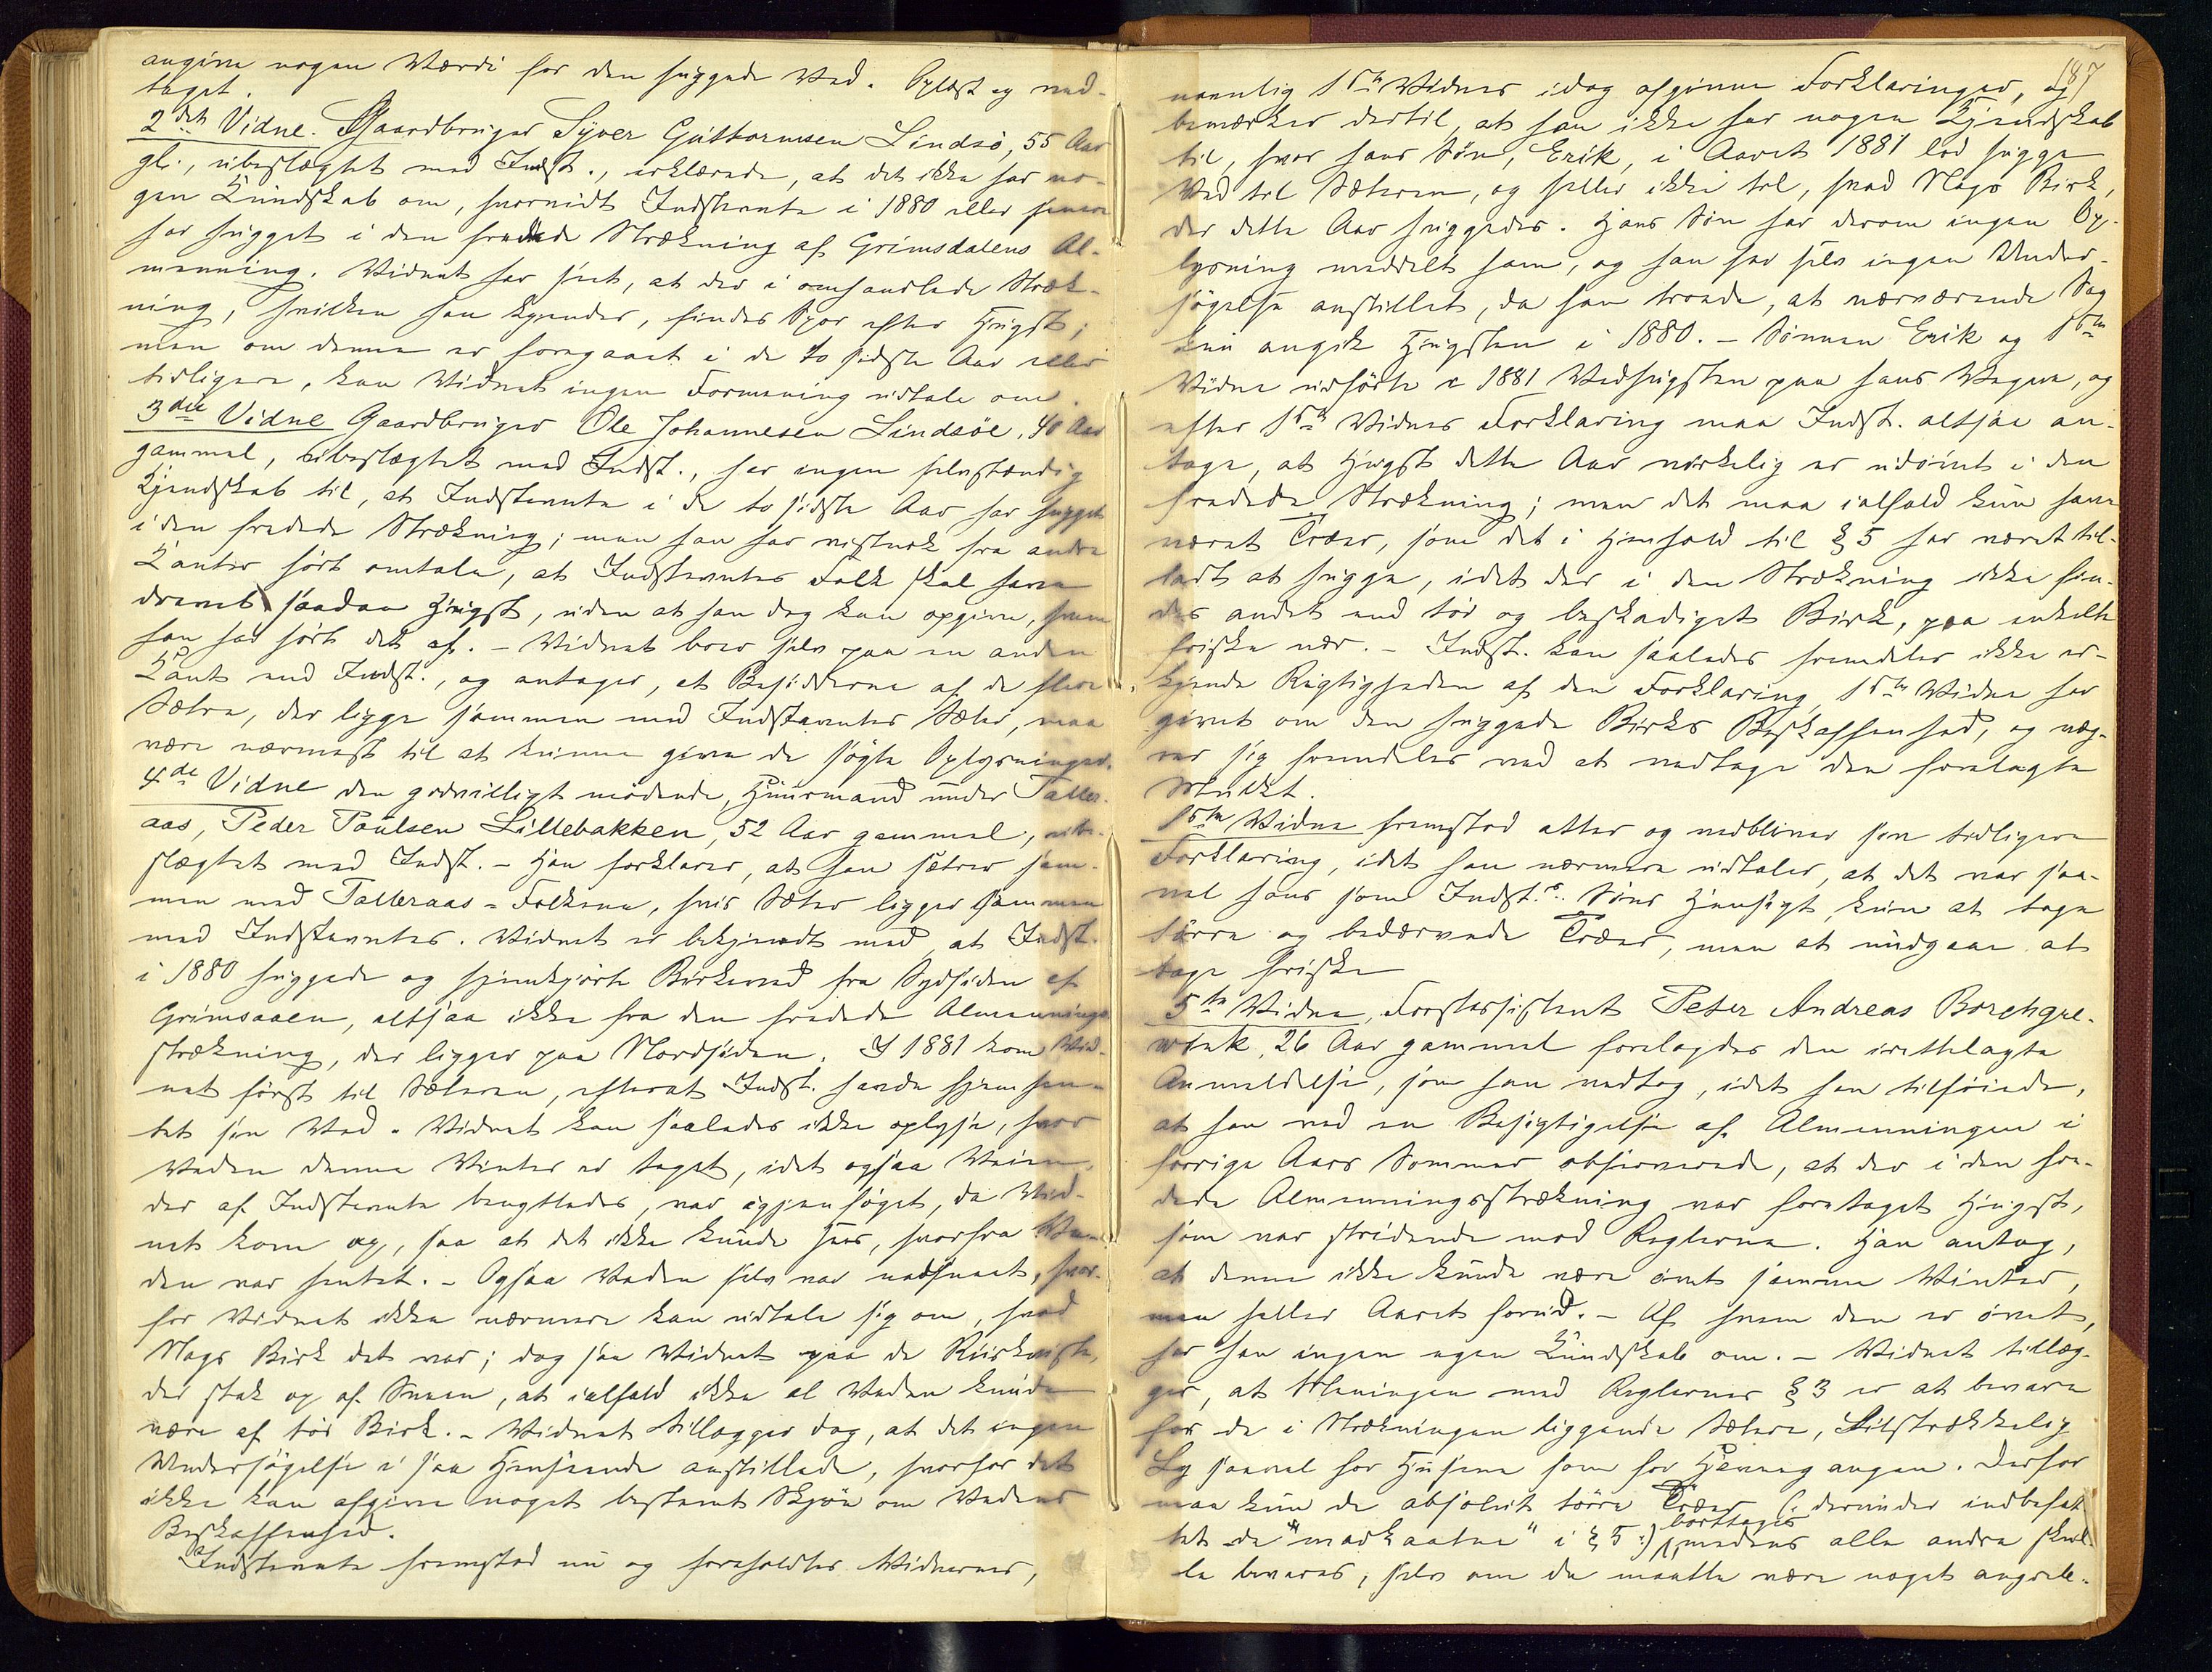 angive nogen Værdi for den huggede Ved. Oplæst og ved-
taget.
2det Vidne. Gaardbruger Syver Guttormsen Lindsö, 55 Aar
gl., ubeslægtet med Indst., erklærede, at det ikke har no-
gen Kundskab om, hvorvidt Indstevnte i 1880 eller senere
har hugget i den fredede Strækning af Grimsdalens Al-
menning. Vidnet har seet, at der i omhandlede Stræk-
ning, hvilken han kjender, findes Spor efter Hugst;
men om denne er foregaaet i de to sidste Aar eller
tidligere, kan Vidnet ingen Formening udtale om.
3die Vidne Gaardbruger Ole Johannesen Lindsöe, 40 Aar
gammel, ubeslægtet med Indst., har ingen selvstændig
Kjendskab til, at Indstevnte i de to sidste Aar har hugget
i den fredede Strækning; men han har vistnok fra andre
Kanter hört omtale, at Indstevntes Folk skal have
drevet saadan Hugst, uden at han dog kan opgive, hvem
han har hört det af. - Vidnet boer selv paa en anden
Kant end Indst., og antager, at Besidderne af de flere
Sætre, der ligge sammen med Indstevntes Sæter, maa
være nærmest til at kunne give de sögte Oplysninger.
4de Vidne den godvilligt mödende, Huusmand under Taller-
aas, Peder Paulsen Lillebakken, 52 Aar gammel, ube-
slægtet med Indst. - Han forklarer, at han sætrer sam-
men med Talleraas-Folkene, hvis Sæter ligger sammen
med Indstevntes. Vidnet er bekjendt med at Indst.
i 1880 huggede og hjemkjörte Birkeved fra Sydsiden af
Grimsaaen, altsaa ikke fra den fredede Almennings-
strækning, der ligger paa Nordsiden. I 1881 kom Vid-
net först til Sæteren, efterat Indst. havde hjemhen-
tet sin Ved. Vidnet kan saaledes ikke oplyse, hvor
Veden denne Vinter er taget, idet ogsaa Veien,
der af Indstevnte benyttedes, var igjenföget, da Vid-
net kom op, saa at det ikke kunde sees, hvorfra Ve-
den var hentet. - Ogsaa Veden selv var nedsneet, hvor-
for Vidnet ikke nærmere kan udtale sig om, hvad
Slags Birk det var; dog saa Vidnet paa de Riiskviste,
der stak op af Sneen, at ialfald ikke al Veden kunde
være af tör Birk. - Vidnet tillægger dog, at det ingen
Undersögelse i saa Henseende anstillede, hvorfor det
ikke kan afgive noget bestemt Skjön om Vedens
Beskaffenhed.
Indstevnte fremstod nu og foreholdtes Vidnernes,
187
navnlig 1ste Vidnes idag afgivne Forklaringer, og
bemærker dertil, at han ikke har nogen Kjendskab
til, hvor hans Sön, Erik, i Aaret 1881 lod hugge
Ved til Sæteren, og heller ikke til, hvad Slags Birk,
der dette Aar huggedes. Hans Sön har derom ingen Op-
lysning meddelt ham, og han har selv ingen Under-
sögelse anstillet, da han troede, at nærværende Sag
kun angik Hugsten i 1880. - Sönnen Erik og 1ste
Vidne udförte i 1881 Vedhugsten paa hans Vegne, og
efter 1ste Vidnes Forklaring maa Indst. altsaa an-
tage, at Hugst dette Aar virkelig er udövet i den
fredede Strækning; men det maa ialfald kun have
været Træer, som det i Henhold til § 5 har været til-
ladt at hugge, idet der i den Strækning ikke fin-
des andet end tör og beskadiget Birk, paa enkelte
friske nær. - Indst. kan saaledes fremdeles ikke er-
kjende Rigtigheden af den Forklaring, 1ste Vidne har
givet om den huggede Birks Beskaffenhed, og væg-
rer sig fremdeles ved at vedtage den forelagte
Mulkt.
1ste Vidne fremstod atter og vedbliver sin tidligere
Forklaring, idet han nærmere udtaler, at det var saa-
vel hans som Indst.s Söns Hensigt, kun at tage
törre og bedærvede Træer, men at undgaae at
tage friske
5te Vidne, Forstassistent Peter Andreas Borchgre-
vink, 26 Aar gammel forelagdes den irettelagte
Anmeldelse, som han vedtog, idet han tilföiede,
at han ved en Besigtigelse af Almenningen i
forrige Aars Sommer observerede, at der i den fre-
dede Almenningsstrækning var foretaget Hugst,
som var stridende mod Reglerne. Han antog,
at denne ikke kunde være övet samme Vinter,
men heller Aaret forud. - Af hvem den er övet,
har han ingen egen Kundskab om. - Vidnet tillæg-
ger, at Meningen med Reglernes § 3 er at bevare
for de i Strækningen liggende Sætere, tilstrækkelig
Ly saavel for Husene som for Havnegangen. Derfor
maa kun de absolut törre Træer (: derunder indbefat-
tet de "madkaatne" i § 5 :) borttages, medens alle andre skul-
le bevares, selv om de maatte være noget angrebe-